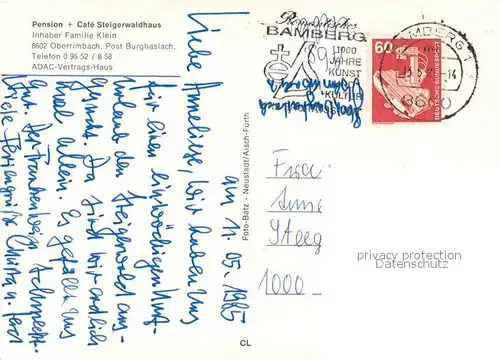 Pension + Café Steigerwaldhaus
Inhaber Familie Klein
8602 Oberrimbach, Post Burghaslach.
Telefon 0 95 52 / 8 58
ADAC-Vertrags-Haus
am 11. 05. 1985
Liebe Anneliese, wir haben uns
für einen einwöchigen Kurz-
urlaub den Steigerwald aus-
gesucht. Da sind wir endlich
mal allein. Es gefällt uns
gut. Der Frankenwein schmeckt.
Viele Feriengrüße Christa u.
Foto-Bätz - Neustadt/Aisch-Fürth
CL
BAMBERG
1000
JAHRE
KUNST
KULTUR
60
DEUTSCHE BUNDESPOST
BAMBERG 1
14
8600
Frau
Anne
Steeg
1000
privacy protection
Datenschutz